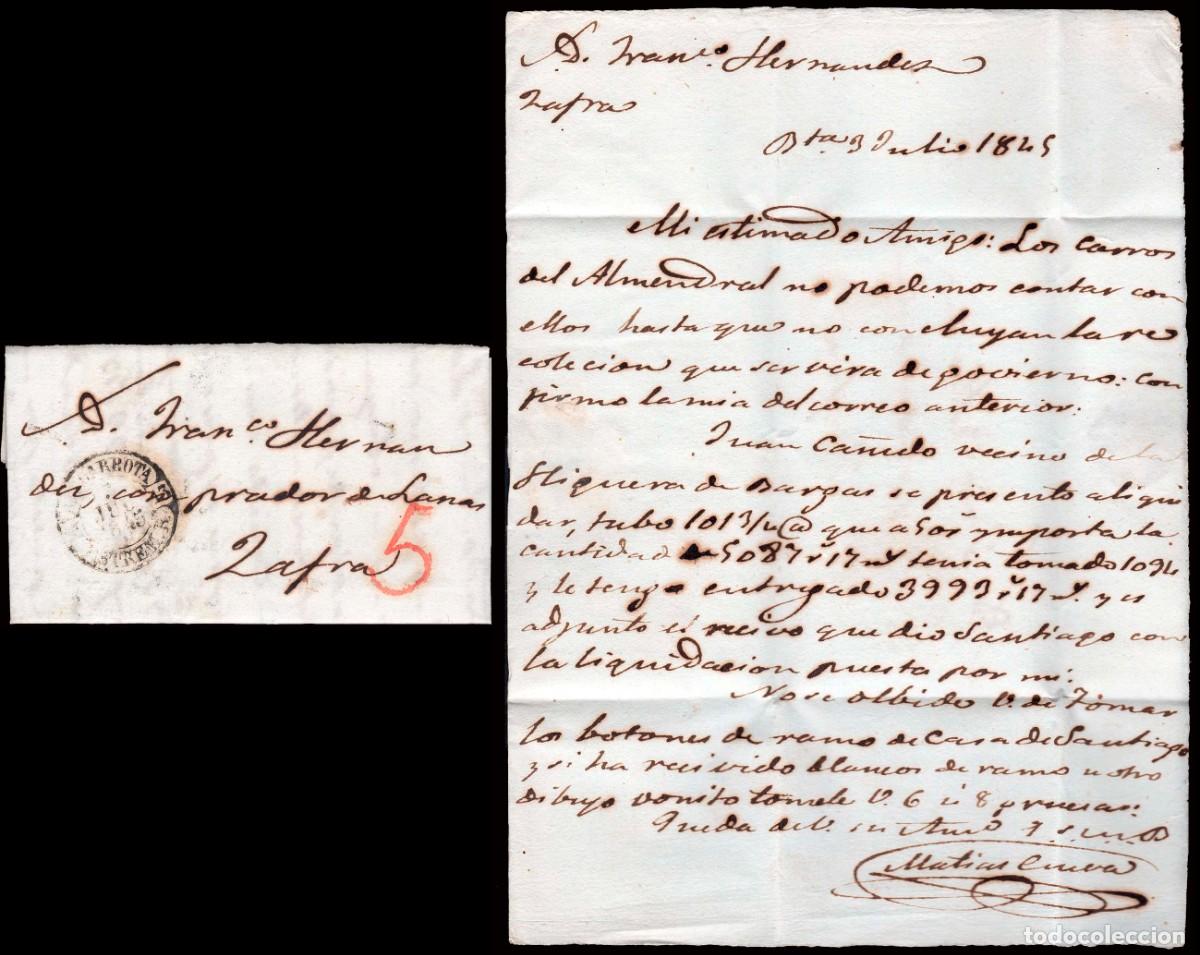 A D. Franco. Hernan
dez, comprador de Lanas
Zafra
5
A D. Franco. Hernandez
Zafra
Bta 3 Julio 1845
Mi estimado Amigo: Los carros
del Almendral no podemos contar con
ellos hasta que no concluyan la re
colecion que servira de govierno: con
firmo la mia del correo anterior:
Juan Cañedo vecino de la
Higuera de Bargas se presento a liqui
dar, tubo 1013/4 @ que a 50 rs ymporta la
cantidad de 5087 rs 17 ms tenia tomado 1094
y le tengo entregado 3993 rs 17 ms y es
adjunto el recivo que dio Santiago con
la liquidacion puesta por mi:
No se olbide V. de Tomar
los botones de ramo de casa de Santiago
y si ha recivido blancos de ramo u otro
dibujo vonito tomele V. 6 u 8 gruesas:
Queda de V. su Amo.
Matias Cueva
todocoleccion